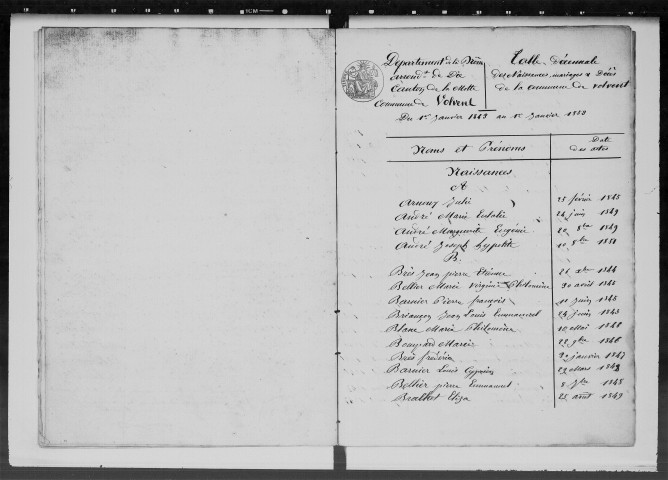 Département de la Drôme
arrond.t de Die
Canton de la Motte
Commune de Volvent
Table Décennale
des Naissances, mariages & Décès
de la commune de Volvent
Du 1er Janvier 1843 au 1er Janvier 1853
Noms et Prénoms
Date des actes
Naissances
A
Arnoux Julie 25 février 1845
André Marie Eulalie 24 juin 1849
André Marguerite Eugénie 20 8bre 1849
André Joseph hypolite 10 8bre 1851
B.
Brès Jean pierre Etienne 26 xbre 1844
Bellier Marie Virginie Philomène 30 avril 1845
Barnier Pierre françois 11 juin 1845
Briançon Jean Louis Emmanuel 24 juin 1845
Blanc Marie Philomène 10 Mai 1848
Bompard Marie 22 9bre 1846
Brès frédéric 30 janvier 1847
Barnier Louis Cyprien 29 Mars 1848
Bellier pierre Emmanuel 8 7bre 1848
Eliza 25 août 1849